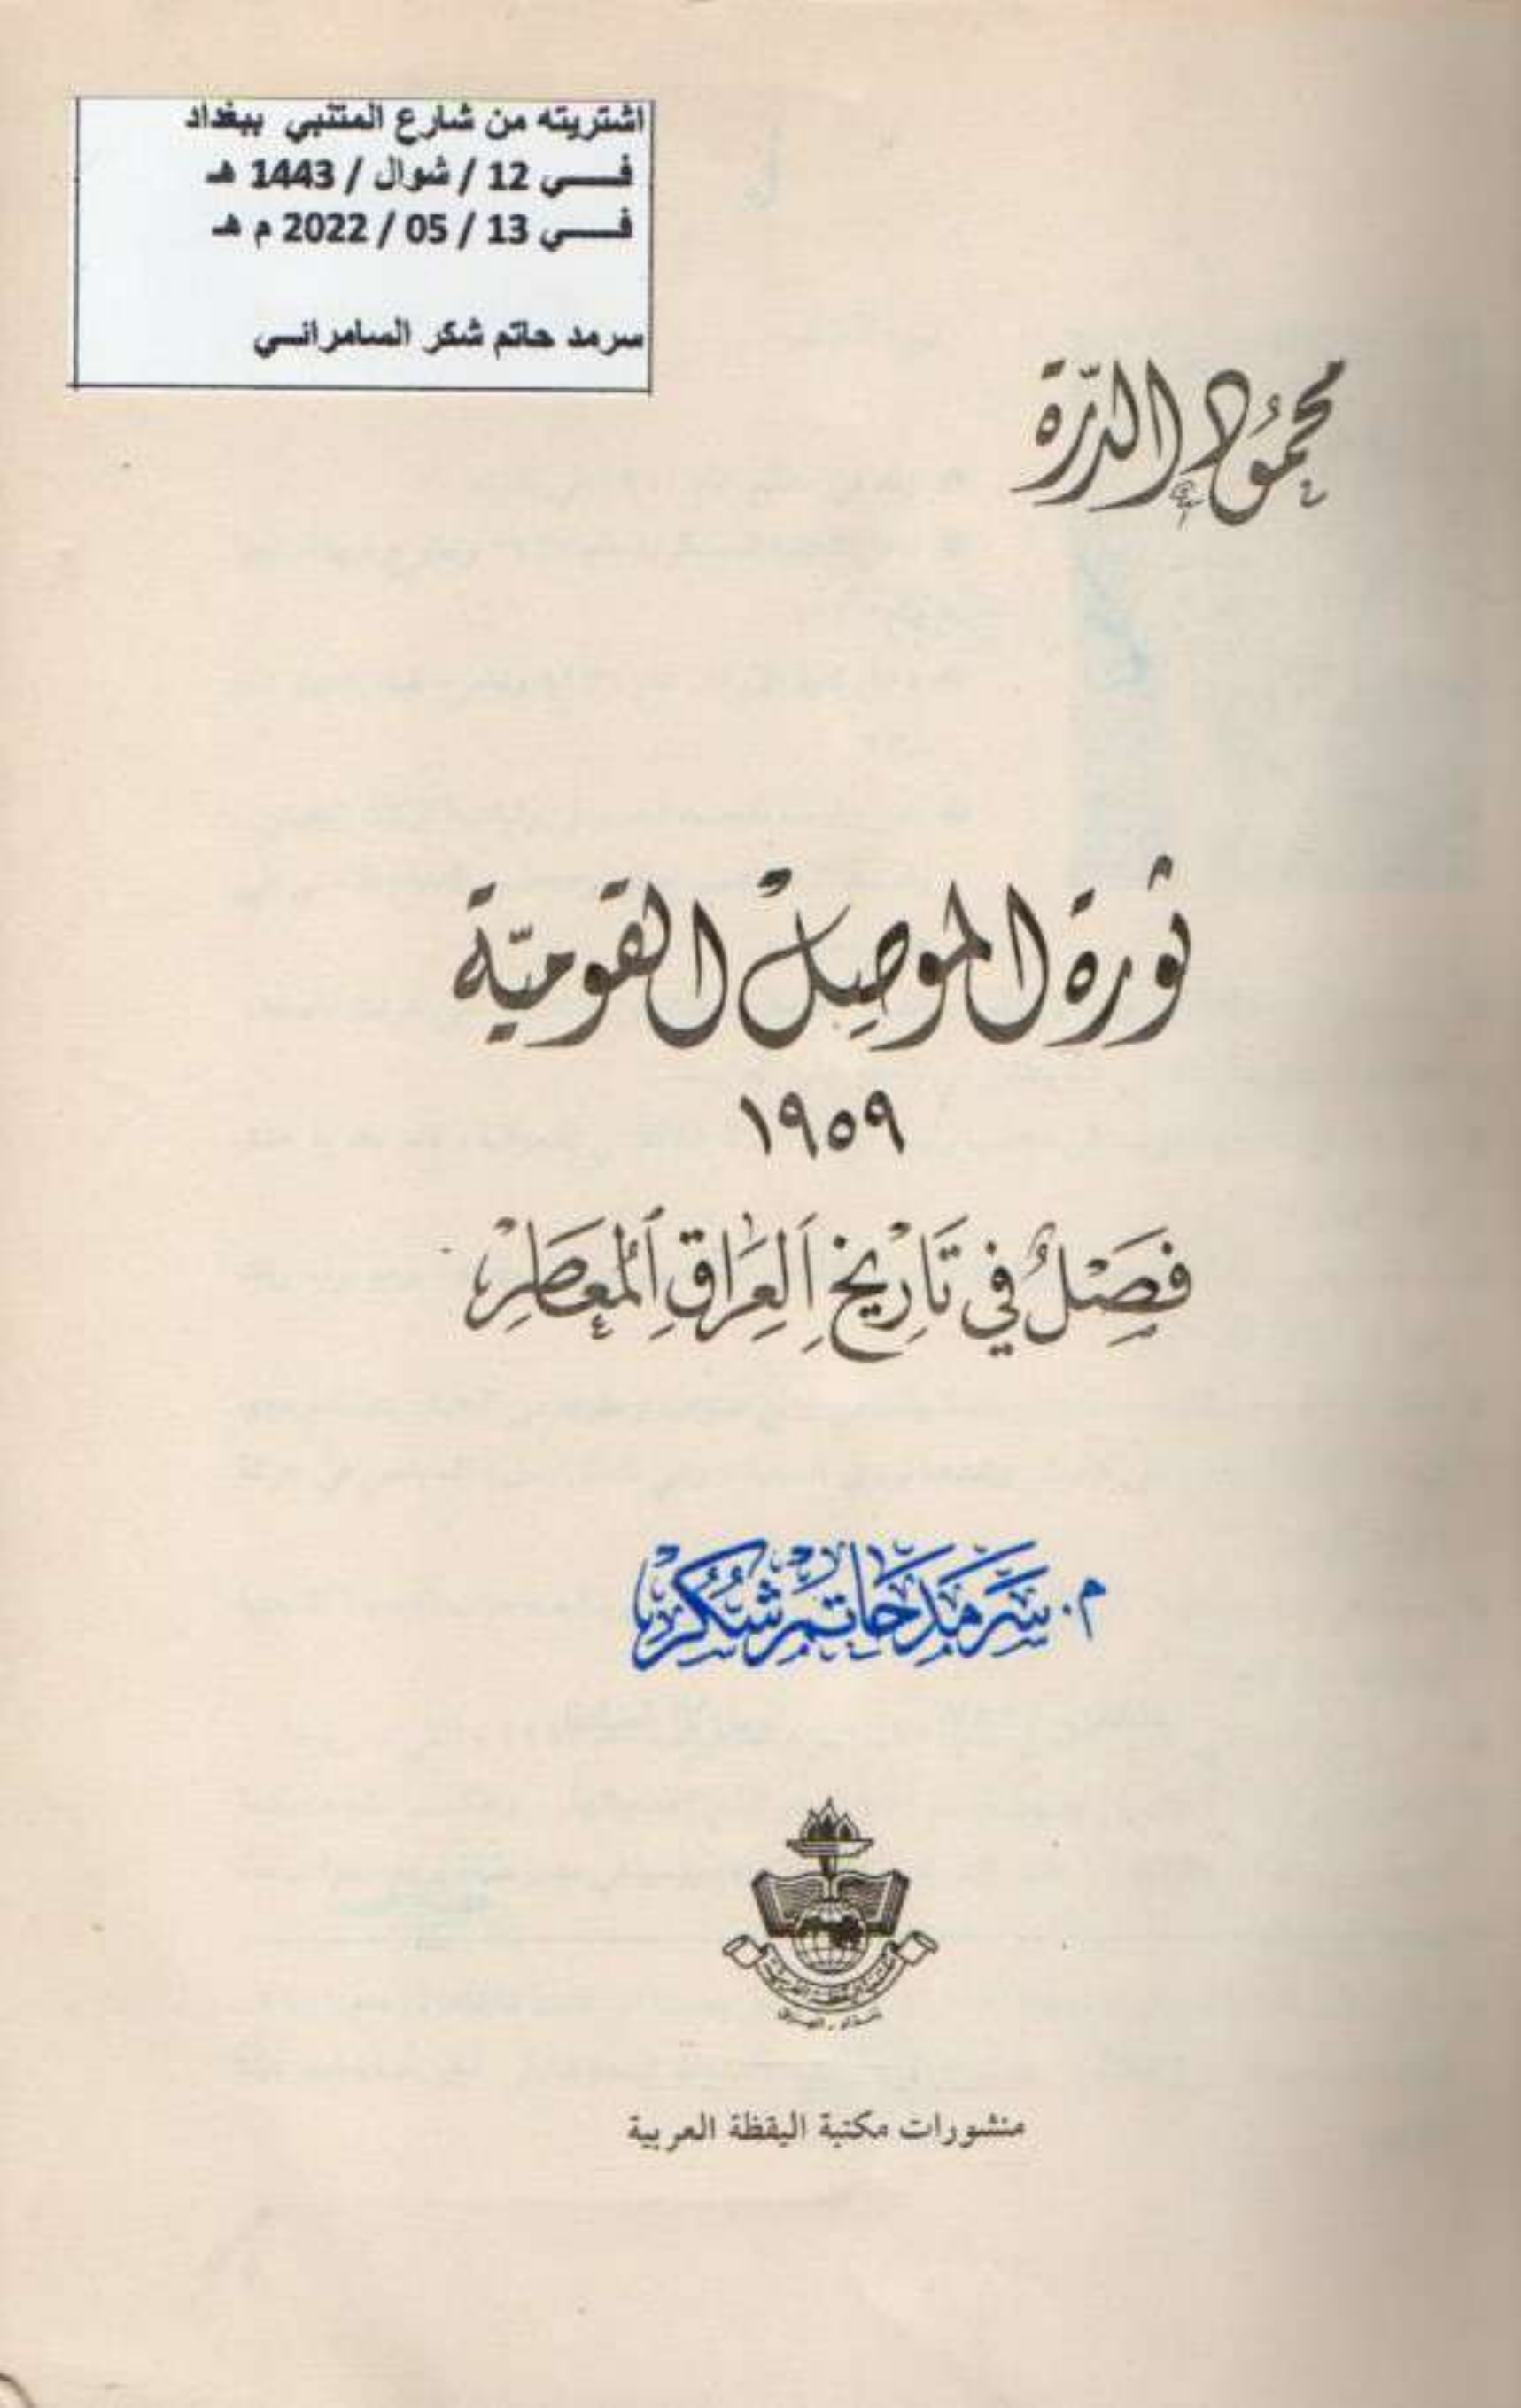 اشتريته من شارع المتنبي ببغداد
فـــي 12 / شوال / 1443 هـ
فـــي 13 / 05 / 2022 م هـ
سرمد حاتم شكر السامرائـــي
محمُود الدّرة
ثورة الموصِلْ القوميّة
١٩٥٩
فَصْلٌ في تَارِيْخِ اَلعِرَاقِ اَلمُعَاصِرْ
م. سَرمَد حَاتمْ شُكُرْ
مكتبة اليقظة العربية
بغداد - العراق
منشورات مكتبة اليقظة العربية